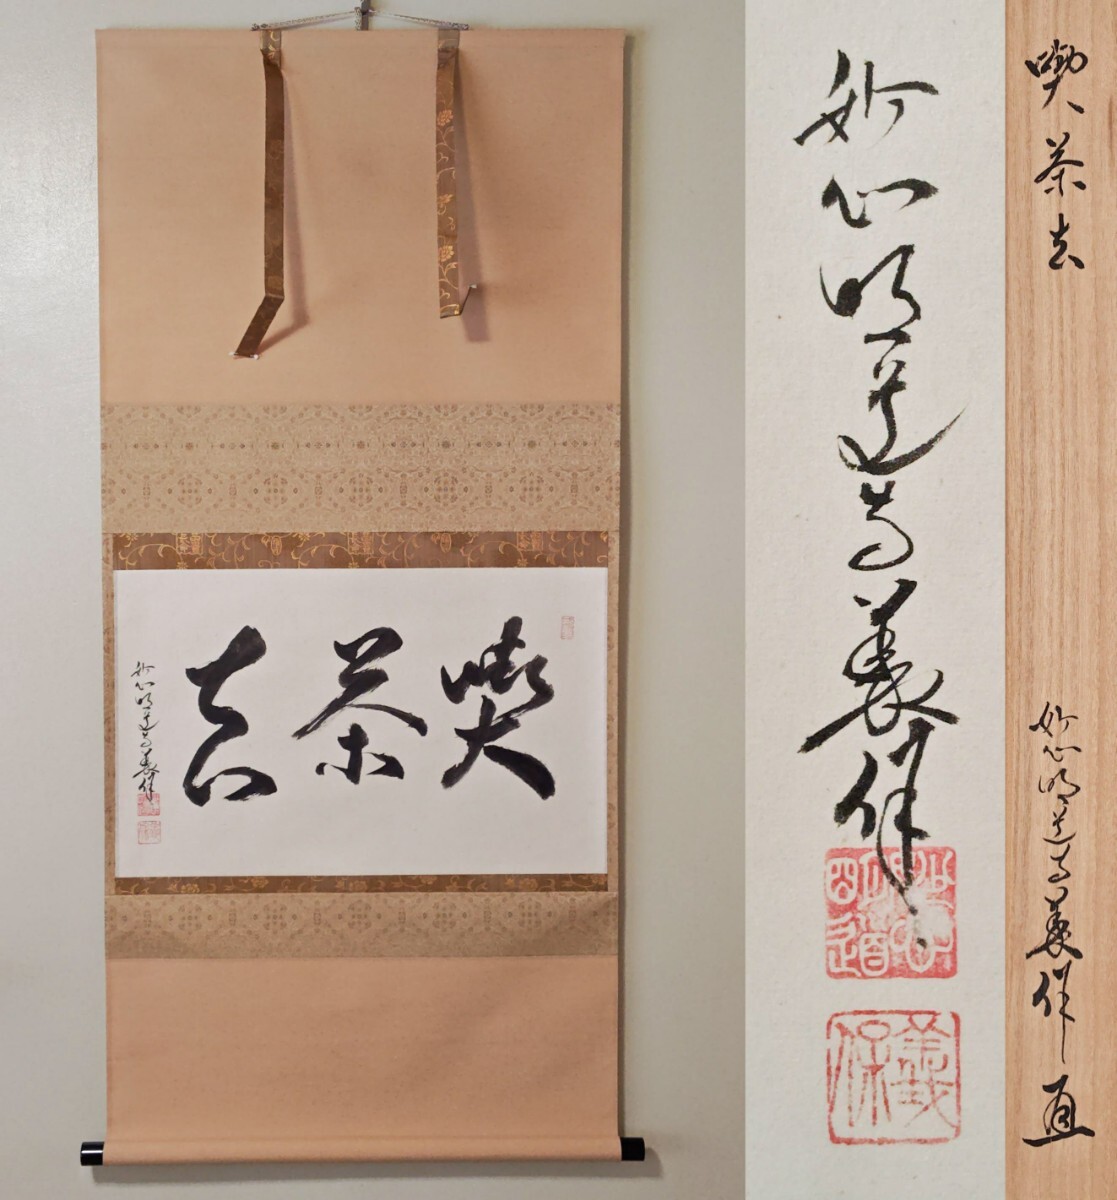 喫茶去
妙心明道寺義保
妙心明道寺義保
義保
喫茶去
妙心明道寺義保 直